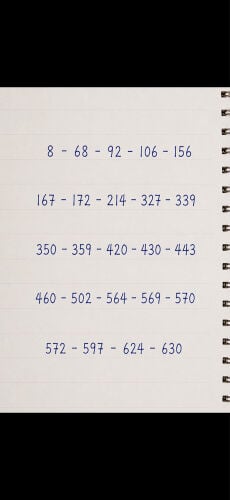 8 - 68 - 92 - 106 - 156
167 - 172 - 214 - 327 - 339
350 - 359 - 420 - 430 - 443
460 - 502 - 564 - 569 - 570
572 - 597 - 624 - 630